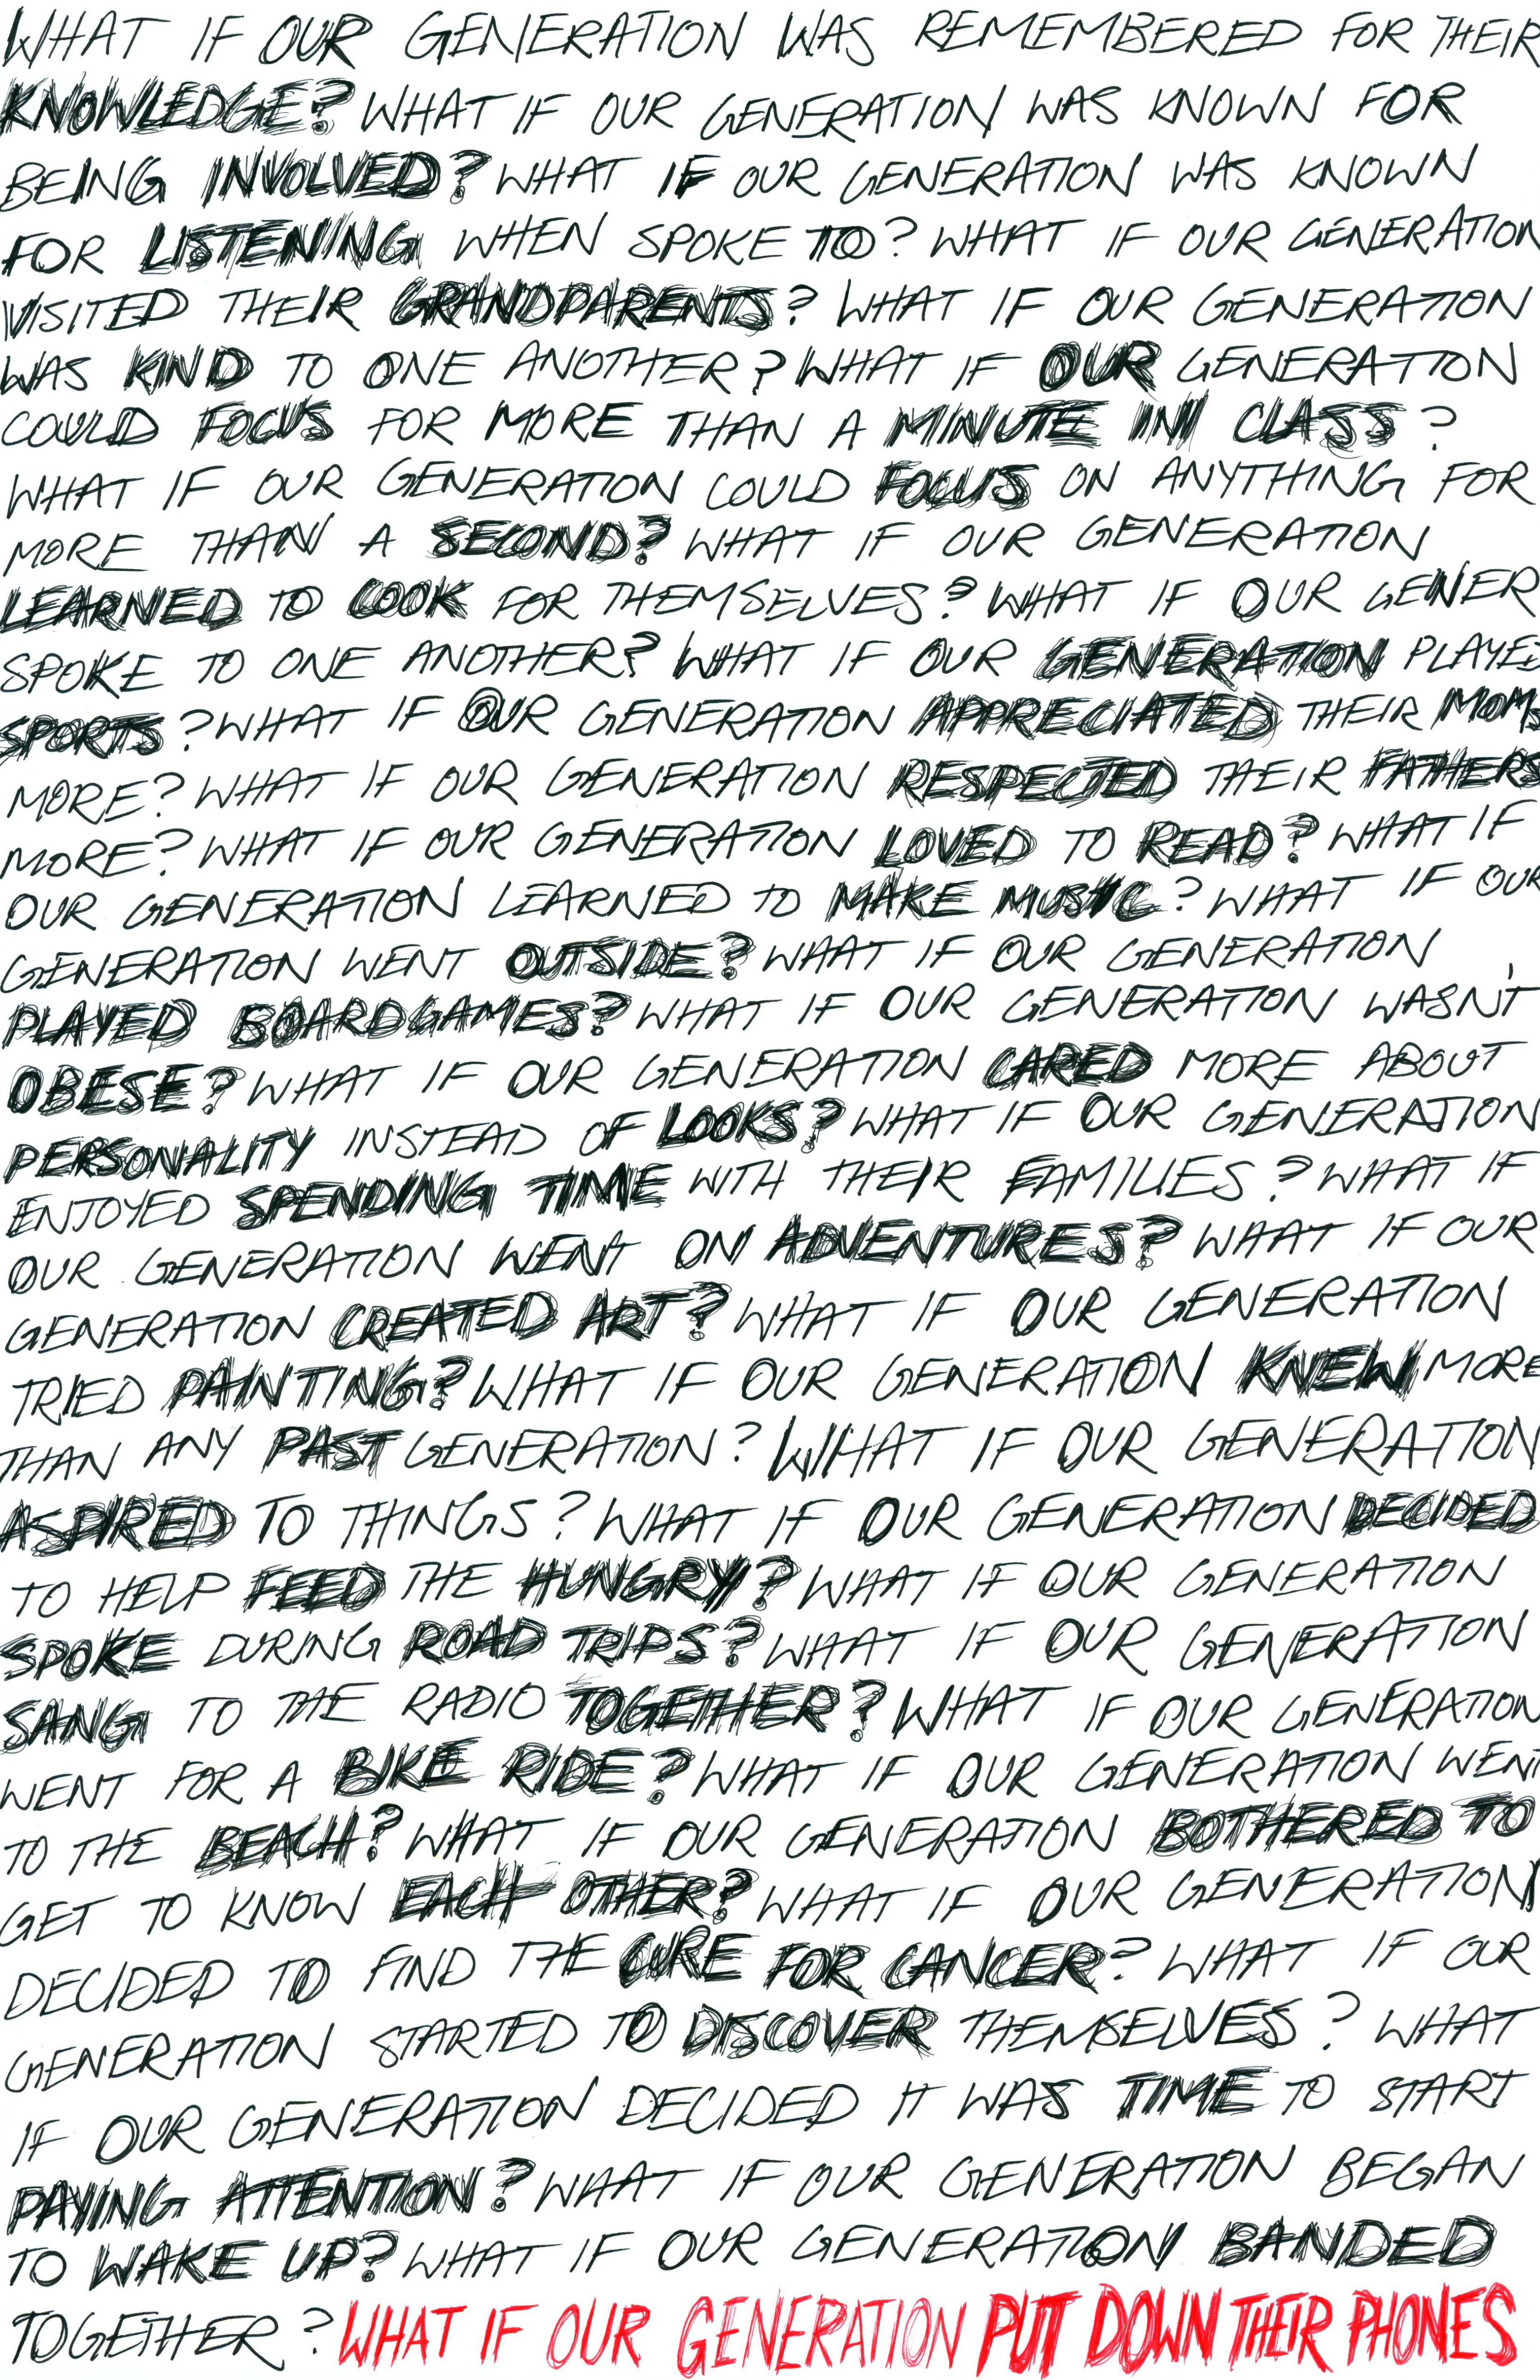 WHAT IF OUR GENERATION WAS REMEMBERED FOR THEIR
KNOWLEDGE? WHAT IF OUR GENERATION WAS KNOWN FOR
BEING INVOLVED? WHAT IF OUR GENERATION WAS KNOWN
FOR LISTENING WHEN SPOKE TO? WHAT IF OUR GENERATION
VISITED THEIR GRANDPARENTS? WHAT IF OUR GENERATION
WAS KIND TO ONE ANOTHER? WHAT IF OUR GENERATION
COULD FOCUS FOR MORE THAN A MINUTE IN CLASS?
WHAT IF OUR GENERATION COULD FOCUS ON ANYTHING FOR
MORE THAN A SECOND? WHAT IF OUR GENERATION
LEARNED TO COOK FOR THEMSELVES? WHAT IF OUR GENER
SPOKE TO ONE ANOTHER? WHAT IF OUR GENERATION PLAYED
SPORTS? WHAT IF OUR GENERATION APPRECIATED THEIR MOMS
MORE? WHAT IF OUR GENERATION RESPECTED THEIR FATHERS
MORE? WHAT IF OUR GENERATION LOVED TO READ? WHAT IF
OUR GENERATION LEARNED TO MAKE MUSIC? WHAT IF OUR
GENERATION WENT OUTSIDE? WHAT IF OUR GENERATION
PLAYED BOARDGAMES? WHAT IF OUR GENERATION WASN'T
OBESE? WHAT IF OUR GENERATION CARED MORE ABOUT
PERSONALITY INSTEAD OF LOOKS? WHAT IF OUR GENERATION
ENJOYED SPENDING TIME WITH THEIR FAMILIES? WHAT IF
OUR GENERATION WENT ON ADVENTURES? WHAT IF OUR
GENERATION CREATED ART? WHAT IF OUR GENERATION
TRIED PAINTING? WHAT IF OUR GENERATION KNEW MORE
THAN ANY PAST GENERATION? WHAT IF OUR GENERATION
ASPIRED TO THINGS? WHAT IF OUR GENERATION DECIDED
TO HELP FEED THE HUNGRY? WHAT IF OUR GENERATION
SPOKE DURING ROAD TRIPS? WHAT IF OUR GENERATION
SANG TO THE RADIO TOGETHER? WHAT IF OUR GENERATION
WENT FOR A BIKE RIDE? WHAT IF OUR GENERATION WENT
TO THE BEACH? WHAT IF OUR GENERATION BOTHERED TO
GET TO KNOW EACH OTHER? WHAT IF OUR GENERATION
DECIDED TO FIND THE CURE FOR CANCER? WHAT IF OUR
GENERATION STARTED TO DISCOVER THEMSELVES? WHAT
IF OUR GENERATION DECIDED IT WAS TIME TO START
PAYING ATTENTION? WHAT IF OUR GENERATION BEGAN
TO WAKE UP? WHAT IF OUR GENERATION BANDED
TOGETHER? WHAT IF OUR GENERATION PUT DOWN THEIR PHONES